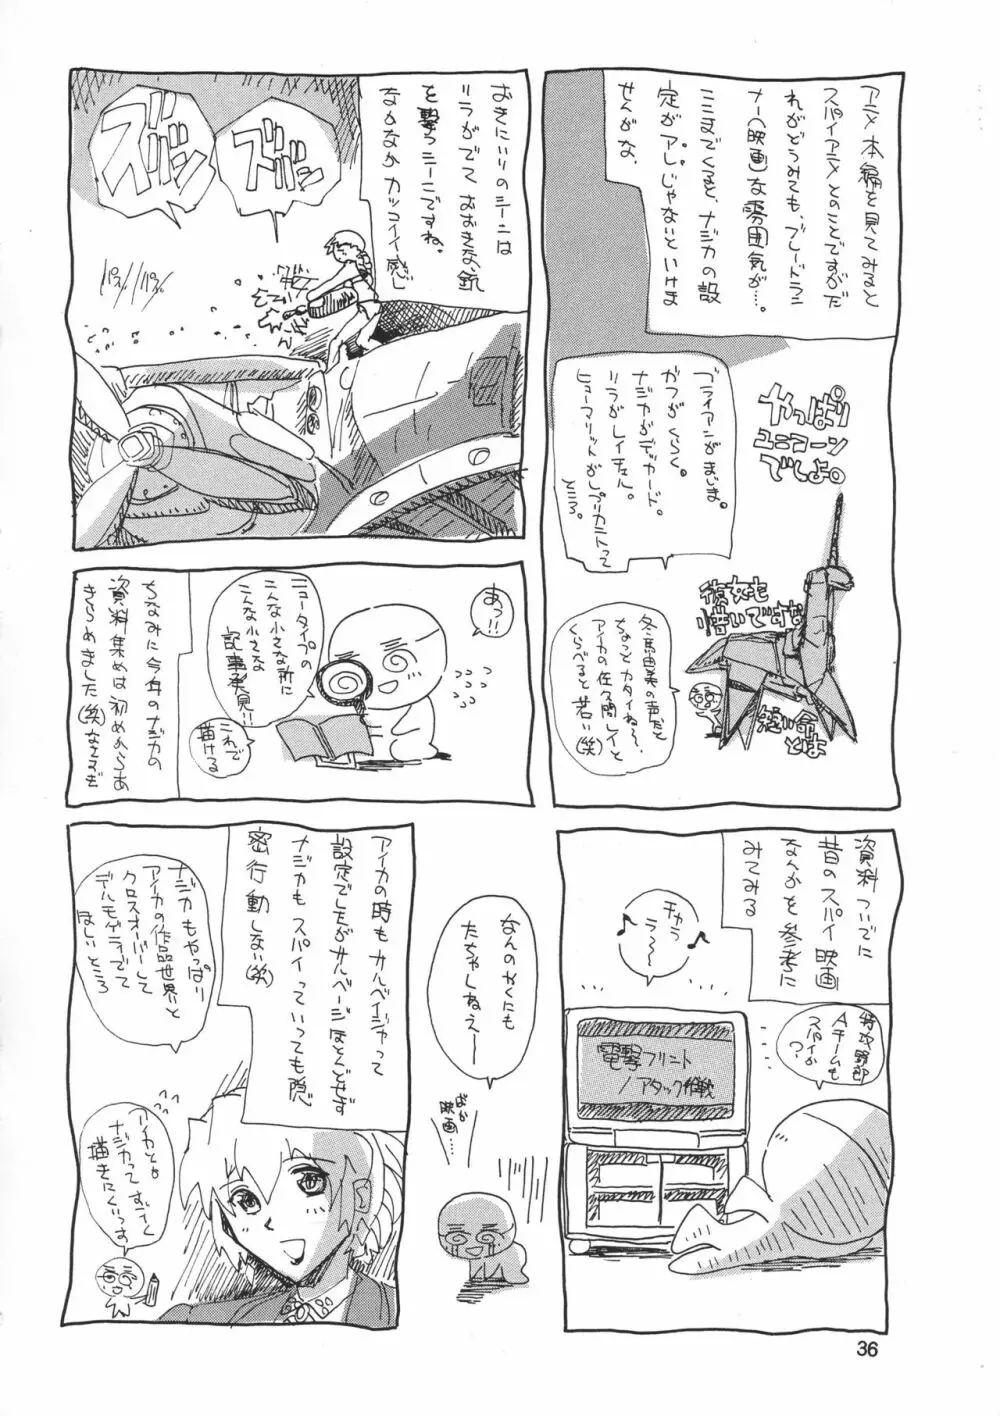 アニメ本編を見てみると
スパイアニメとのことですがだ
れがどうみても、ブレードラン
ナー(映画)な雰囲気が……。
ここまでくると、ナジカの設
定がアレじゃないといけま
せんがな
やっぱり
ユニコーン
でしょ。
ブライアンがおじま。
がフがくくく。
ナジカがデッカード。
リラがレイチェル。
ヒューマリットがレプリカントって
彼女も
惜いですな
短い命
とは
冬馬由美の声だと
ちょっとカタイわる〜、
アイカの佐久間レイと
くらべると若い(笑)
おきにいりのシーンは
リラがでておおきな銃
を撃つシーンですね。
なかなかカッコイイ感じ
ズバッ
ズバッ
パス//パス//
あっ!!
ニュータイプの
こんな小さな所に
こんな小さな
記事発見!!
これで
描ける
ちなみに今年のナジカの
資料集めは初めからあ
きらめました(笑)なさすぎ
資料ついでに
昔のスパイ映画
なんかを参考に
みてみる
チャラ
ラ〜
特攻野郎
Aチームも
スパイか
?
電撃フリント
/アタック作戦
なんのやくにも
たちゃしねえ――
ばか
映画…
アイカの時もナルベイジャって
設定でしたがサルベージほとんどせず
ナジカもスパイっていっても隠
密行動しない(笑)
ナジカもやっぱり
アイカの作品世界と
クロスオーバーして
デルモゲッラでて
ほしいところ
リイカとか
ナジカってすごく
描きにくいっす
36